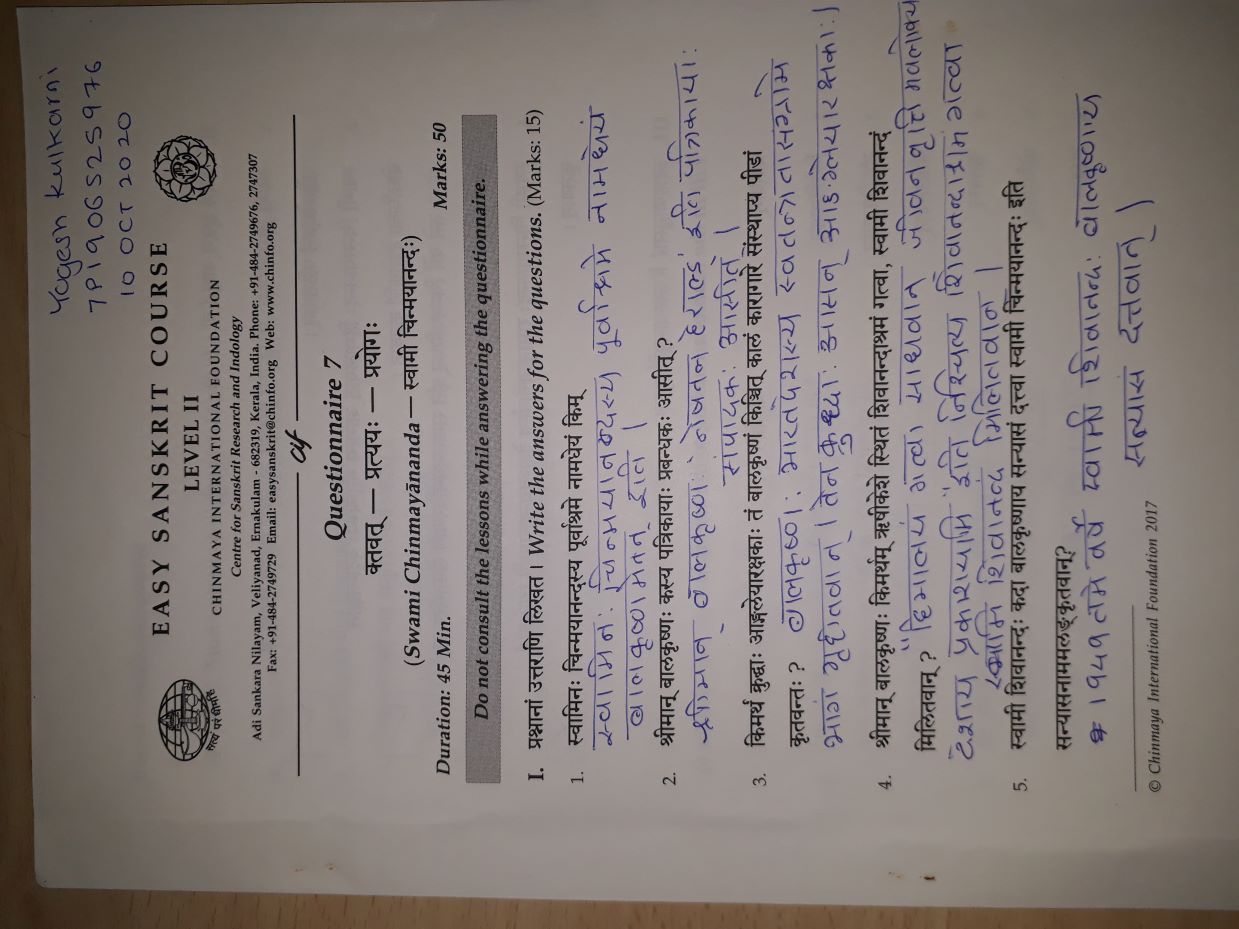 Yogesh Kulkarni
7P1906525976
10 OCT 2020
EASY SANSKRIT COURSE
LEVEL II
CHINMAYA INTERNATIONAL FOUNDATION
Centre for Sanskrit Research and Indology
Adi Sankara Nilayam, Veliyanad, Ernakulam - 682319, Kerala, India. Phone: +91-484-2749676, 2747307
Fax: +91-484-2749729 Email: easysanskrit@chinfo.org Web: www.chinfo.org
सत्यं परं धीमहि
cif
Questionnaire 7
क्तवत् — प्रत्ययः — प्रयोगः
(Swami Chinmayānanda — स्वामी चिन्मयानन्दः)
Duration: 45 Min. Marks: 50
Do not consult the lessons while answering the questionnaire.
I. प्रश्नानां उत्तराणि लिखत । Write the answers for the questions. (Marks: 15)
1. स्वामिनः चिन्मयानन्दस्य पूर्वाश्रमे नामधेयं किम्
स्वामिनः चिन्मयानन्दस्य पूर्वाश्रमे नामधेयं
बालकृष्णमेनन् इति ।
2. श्रीमान् बालकृष्णः कस्य पत्रिकायाः प्रबन्धकः आसीत् ?
श्रीमान् बालकृष्णः 'नेषनन हेराल्ड' इति पत्रिकायाः
संपादकः आसीत् ।
3. किमर्थं क्रुद्धाः आङ्गलेयारक्षकाः तं बालकृष्णं किञ्चित् कालं कारागारे संस्थाप्य पीडां
कृतवन्तः ? बालकृष्णः भारतदेशस्य स्वतन्त्रतासंग्रामे
भागं गृहीतवान् । तेन क्रुध्दाः आसन् आङ्ग्लेयारक्षकाः ।
4. श्रीमान् बालकृष्णः किमर्थम् ऋषीकेशे स्थितं शिवानन्दाश्रमं गत्वा, स्वामी शिवानन्दं
मिलितवान् ? "हिमालयं गत्वा साधवान् जीवनवृत्तिमवलोक्य
देशाय प्रकाशयामि" इति निश्चित्य शिवानन्दाश्रमं गत्वा
स्वामि शिवानन्दं मिलितवान ।
5. स्वामी शिवानन्दः कदा बालकृष्णाय सन्यासं दत्त्वा स्वामी चिन्मयानन्दः इति
सन्यासनाममलङ्कृतवान्?
१९४९ तमे वर्षे स्वामी शिवानन्दः बालकृष्णाय
सन्यासं दत्तवान् ।
© Chinmaya International Foundation 2017